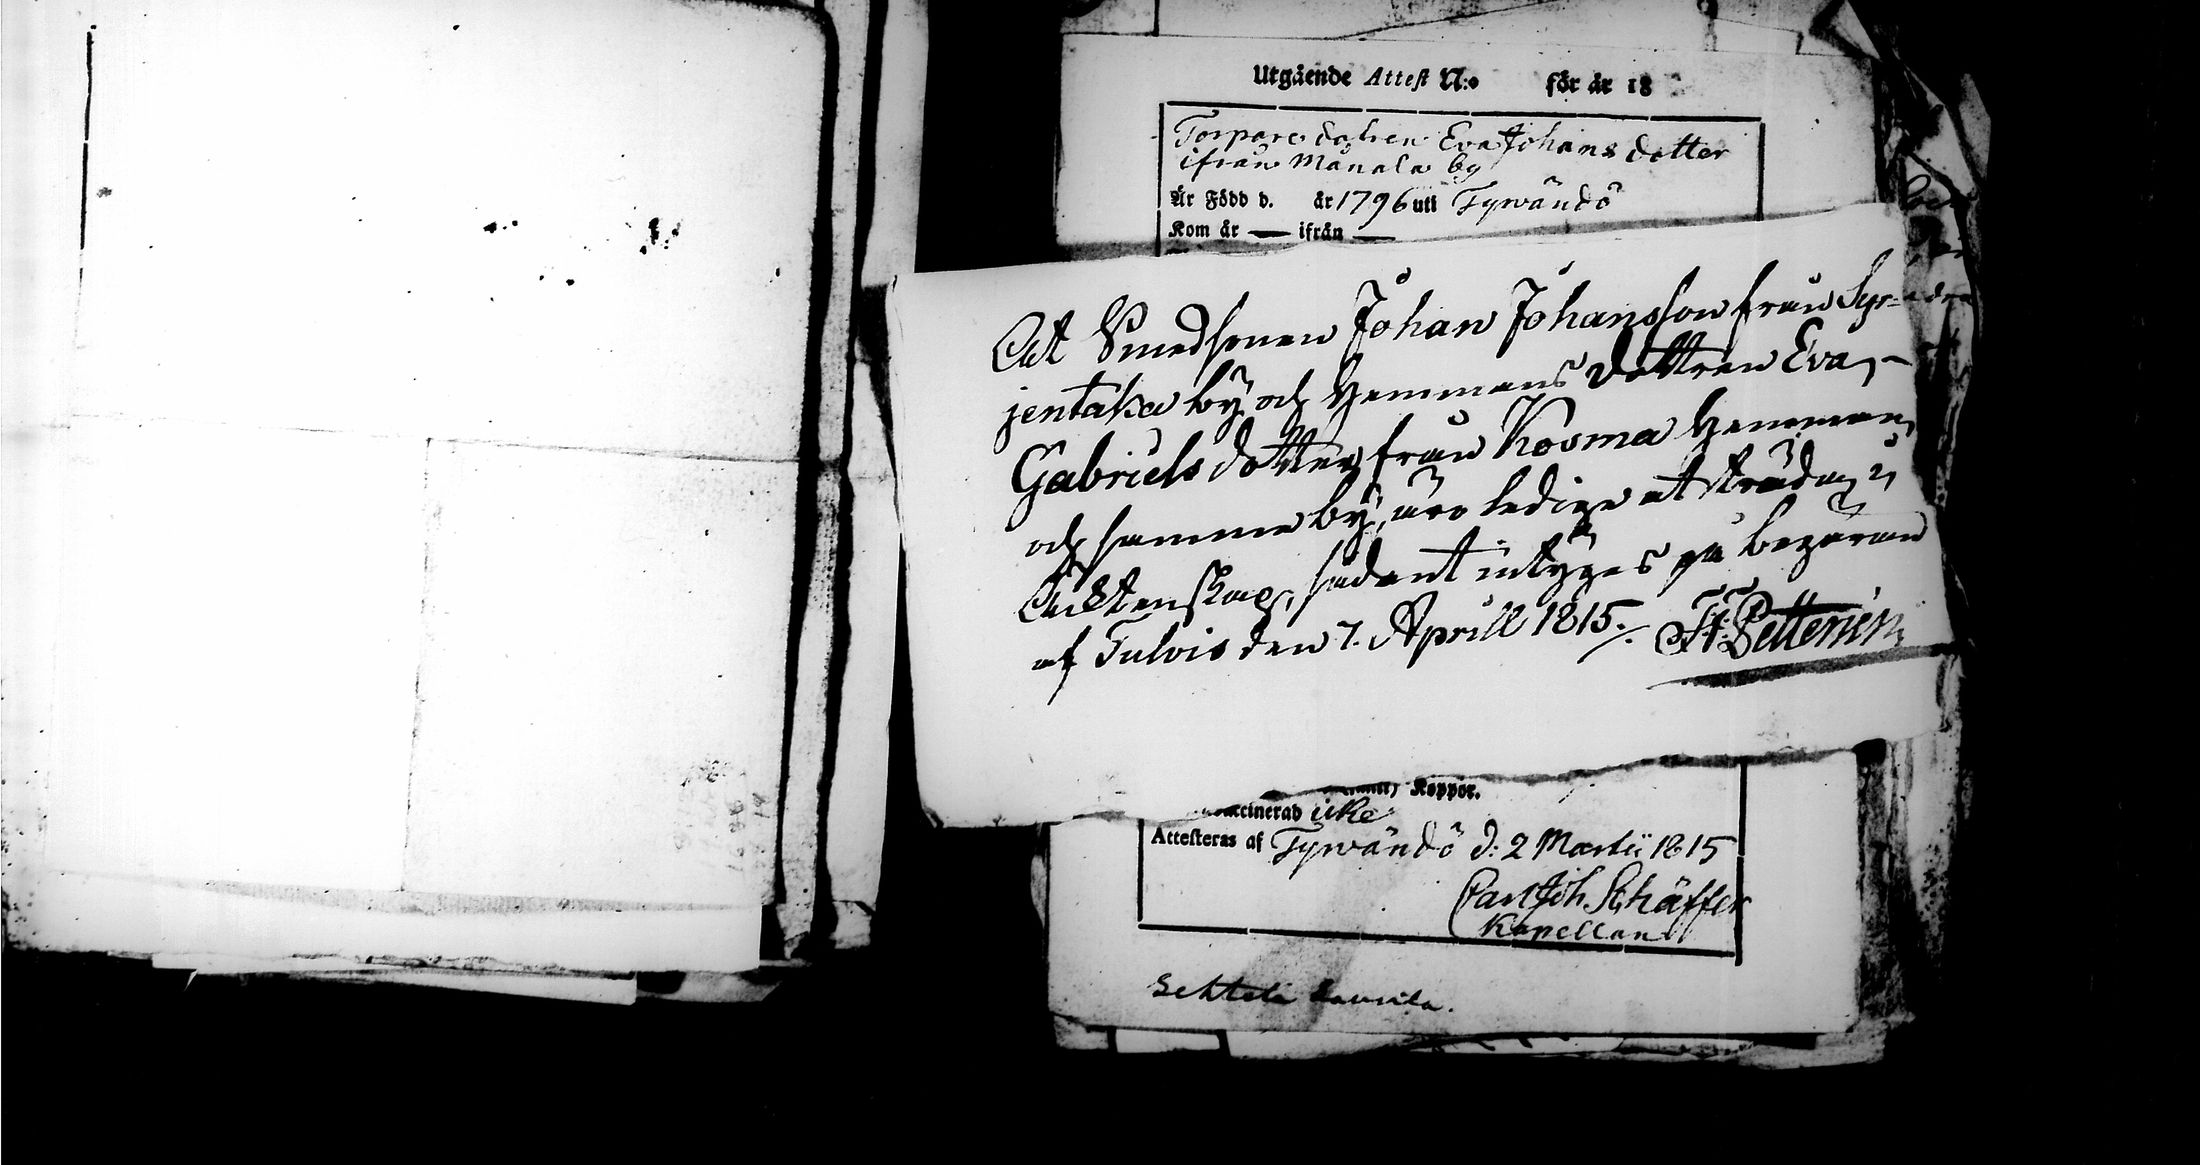 Utgående Attest N:o för år 18
Torpare dotren Eva Johans dotter
ifrån Månala by
Är Född d. år 1796 uti Tyrvändö
Kom år — ifrån —
At Smedsonen Johan Johansson från Syr=
jentaka by och Hemmans Dottren Eva
Gabriels dotter från Kosma Hemman
och samma by, äro ledige at träda i
Ächtenskap, sådant intyges på begäran
af Tulois den 7. Aprill 1815. /.
Koppor.
icke
Attesteras af Tyrvändö d: 2 Martii 1815
Carl Joh Schäffer
Kapellan